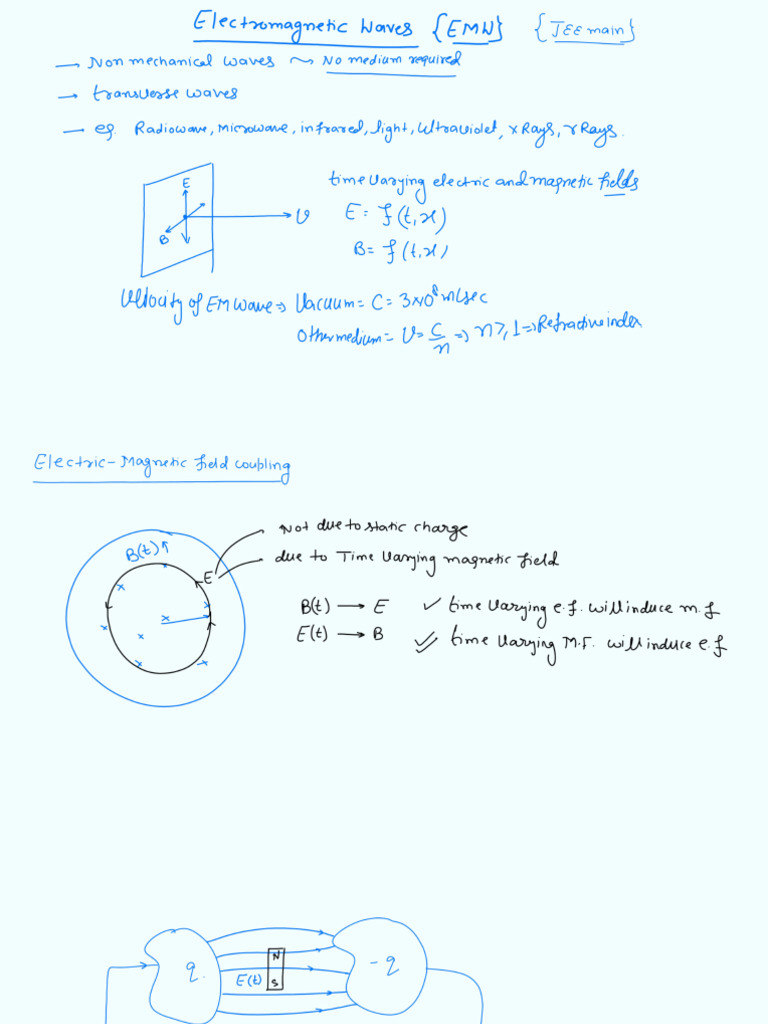 Electromagnetic Waves {EMW} {JEE main}
→ Non mechanical waves ~ No medium required
→ transverse waves
→ eg. Radiowave, Microwave, infrared, light, Ultraviolet, x Rays, γ Rays.
E
B
v
time varying electric and magnetic fields
E = f(t,x)
B = f(t,x)
Velocity of EM wave ⇒ Vacuum = C = 3×10⁸ m/sec
Other medium = v = C/n ⇒ n ≥ 1 ⇒ Refractive index
Electric-Magnetic field coupling
B(t) ↑
E
Not due to static charge
due to Time Varying magnetic field
B(t) → E ✓ time varying e.f. will induce m.f
E(t) → B ✓ time varying M.F. will induce e.f
q
E(t)
N
S
-q